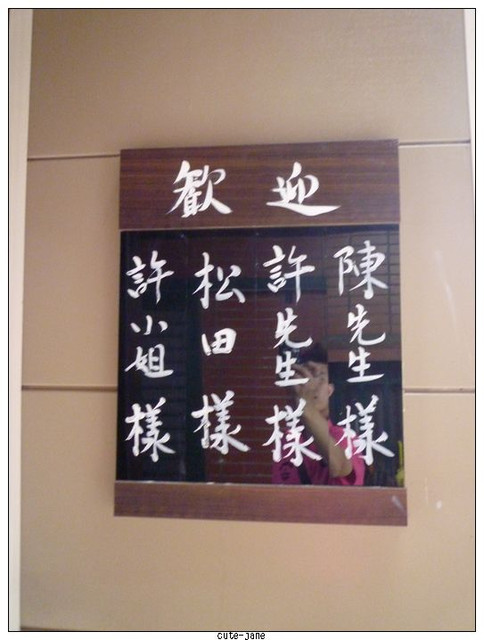 歡迎
陳先生様
許先生様
松田様
許小姐様
cute-jane